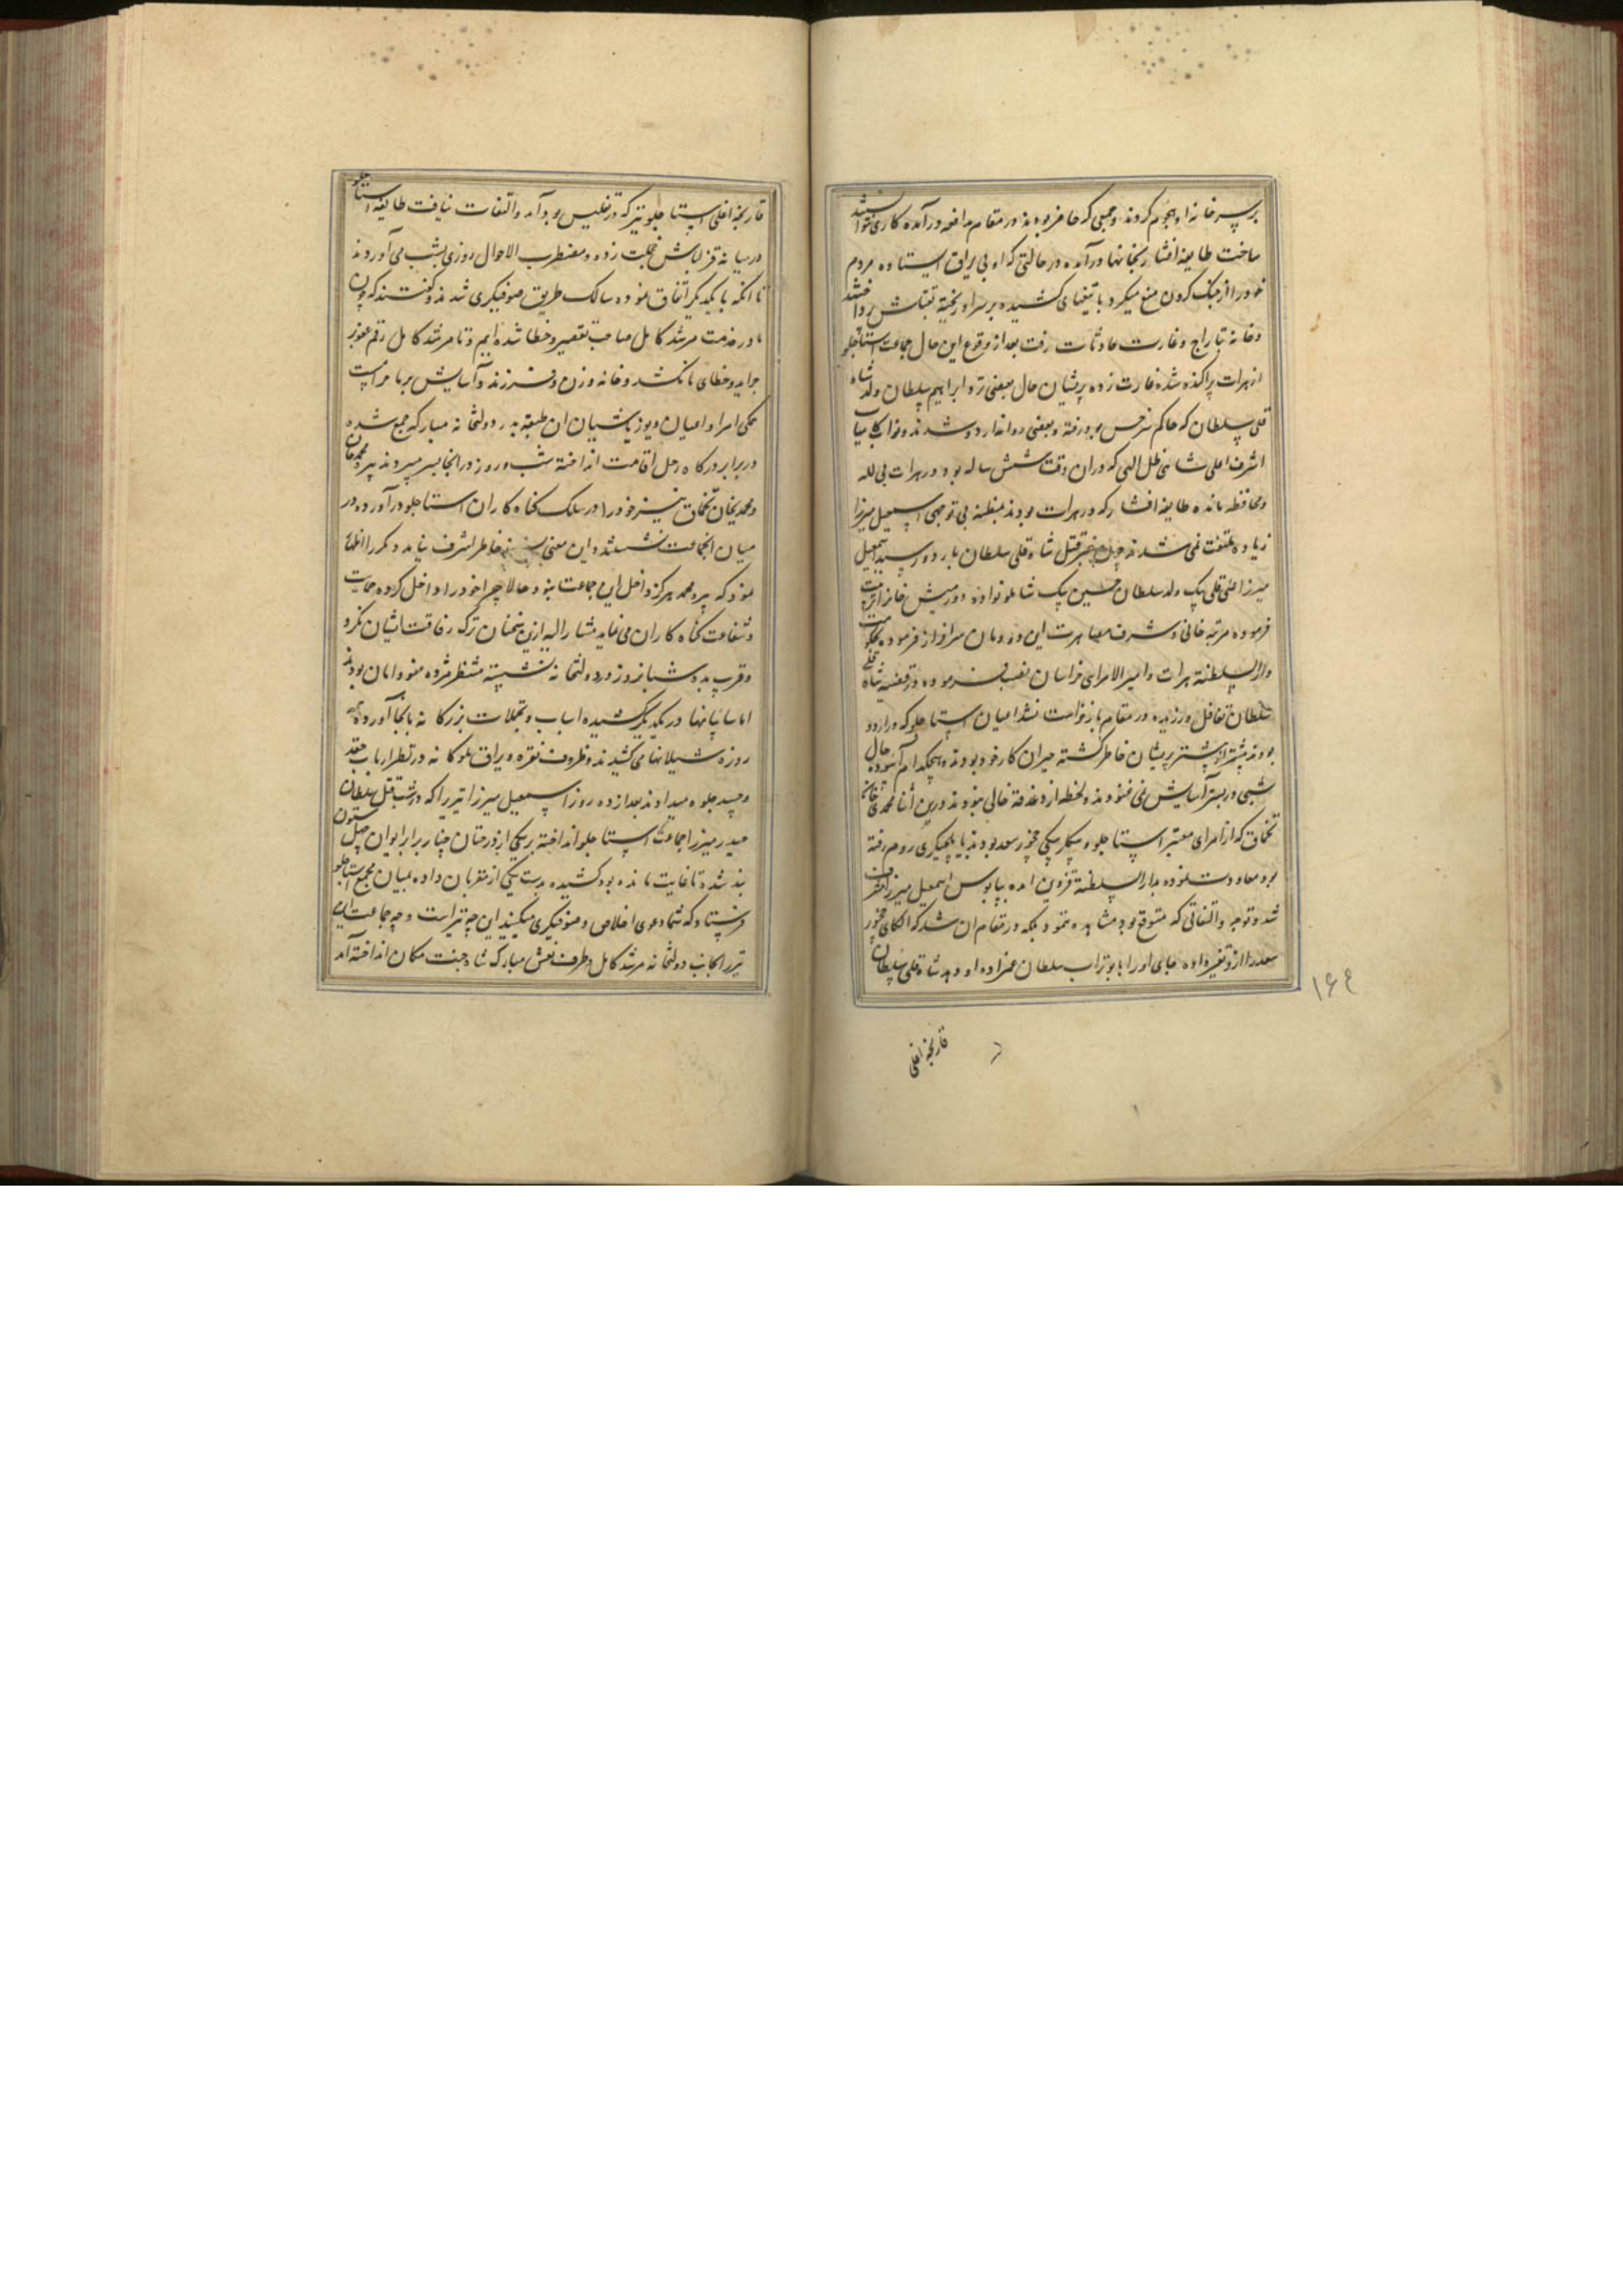 بر سر خانه او هجوم کردند و جمعی که حاضر بودند در مقام مدافعه درآمده کاری نتوانستند
ساخت طایفه افشار بخانها درآمده در حالتی که او بی یراق ایستاده مردم
خود را از جنگ کردن منع میکرد با تیغهای کشیده بر سر او ریخته بقتلش پرداختند
و خانه تاراج و غارت حادثات رفت بعد از وقوع این حال جماعت استاجلو
از هرات پراکنده شده غارت زده پریشان حال بعضی نزد ابراهیم سلطان ولد شاه
قلی سلطان که حاکم سرخس بود رفته و بعضی روانه اردو شدند و نواب کامیاب
اشرف اعلی شاهی ظل الهی که در ان وقت شش ساله بود در هرات بی لله
و محافظه مانده طایفه افشار که در هرات بودند بمظنه بی توجهی اسمعیل میرزا
زیاده ملتفت نمی شدند چون خبر قتل شاه قلی سلطان باردو رسید اسمعیل
میرزا علی قلی بیک ولد سلطان حسین بیک شاملو نواده دورمیش خانرا تربیت
فرموده مرتبه خانی و شرف مصاهرت این دودمان سرافراز فرموده بحکومت
دارالسلطنه هرات و امیرالامرای خراسان نصب فرموده در قضیه شاه قلی
سلطان تغافل ورزیده در مقام بازخواست نشد اعیان استاجلو که در اردو
بودند بیشتر از پیشتر پریشان خاطر گشته حیران کار خود بودند و هیچکدام آسوده حال
شبی در بستر آسایش نمی غنودند و لحظه از دغدغه خالی نبودند درین اثنا محمدی خان
تخماق که از امرای معتبر استاجلو و بیگلربیگی چخور سعد بود بایلچیگری روم رفته
بود معاودت نموده بدارالسلطنه قزوین امده بپابوس اسمعیل میرزا مشرف
شد و توجه و التفاتی که متوقع بود مشاهده ننمود بلکه در مقام ان شد که الکای چخور
سعد را از و تغیر داده بجای او را با بوتراب سلطان عمزاده او دهد شاه قلی سلطان
۱۶۴
قارنجه اغلی
قارنجه اغلی استاجلو نیز که در تفلیس بود آمد و التفات نیافت طایفه استاجلو
در میانه قزلباش خجلت زده و مضطرب الاحوال روزی بشب می آوردند
تا انکه با یکدیگر اتفاق نموده سالک طریق صوفیگری شدند و گفتند که چون
ما در خدمت مرشد کامل صاحب تقصیر و خطا شده ایم و تا مرشد کامل رقم عفو بر
جراید و خطای ما نکشد و خانه و زن و فرزند و آسایش بر ما حرامست
همگی امرا و اعیان و یوزباشیان ان طبقه بدر دولتخانه مبارکه جمع شده
در برابر درگاه رحل اقامت انداخته شب و روز در انجا بسر میبردند پیر محمد خان
و محمدیخان تخماق نیز خود را در سلک گناه کاران استاجلو درآورده در
میان انجماعت نشستند و این معنی خاطر اشرف نیامد و مکرر اظهار
نمود که پیر محمد هرگز داخل این جماعت نبود حالا چرا خود را داخل کرده حمایت
و شفاعت گناه کاران می نماید مشارالیه ازین سخنان ترک رفاقت ایشان نکرد
و قرب بده شبانروز در دولتخانه نشسته منتظر مژده عفو و امان بودند
اما سایبانها در یکدیگر کشیده اسباب و تجملات بزرگانه بانجا آورده همه
روزه شیلانها می کشیدند و ظروف نقره و یراق ملوکانه در نظر ارباب حقد
و حسد جلوه میدادند بعد از ده روز اسمعیل میرزا تیر را که در شب قتل سلطان
حیدر میرزا جماعت استاجلو انداخته بر یکی از درختان چنار برابر ایوان چهل ستون
بند شده تا غایت مانده بود کشیده بدست یکی از مقربان داده بمیان مجمع استاجلو
فرستاد که شما دعوی اخلاص و صوفیگری میکنید این چه تیر است و چه جماعت این
تیر را بجانب دولتخانه مرشد کامل و طرف نعش مبارک شاه جنت مکان انداخته اند